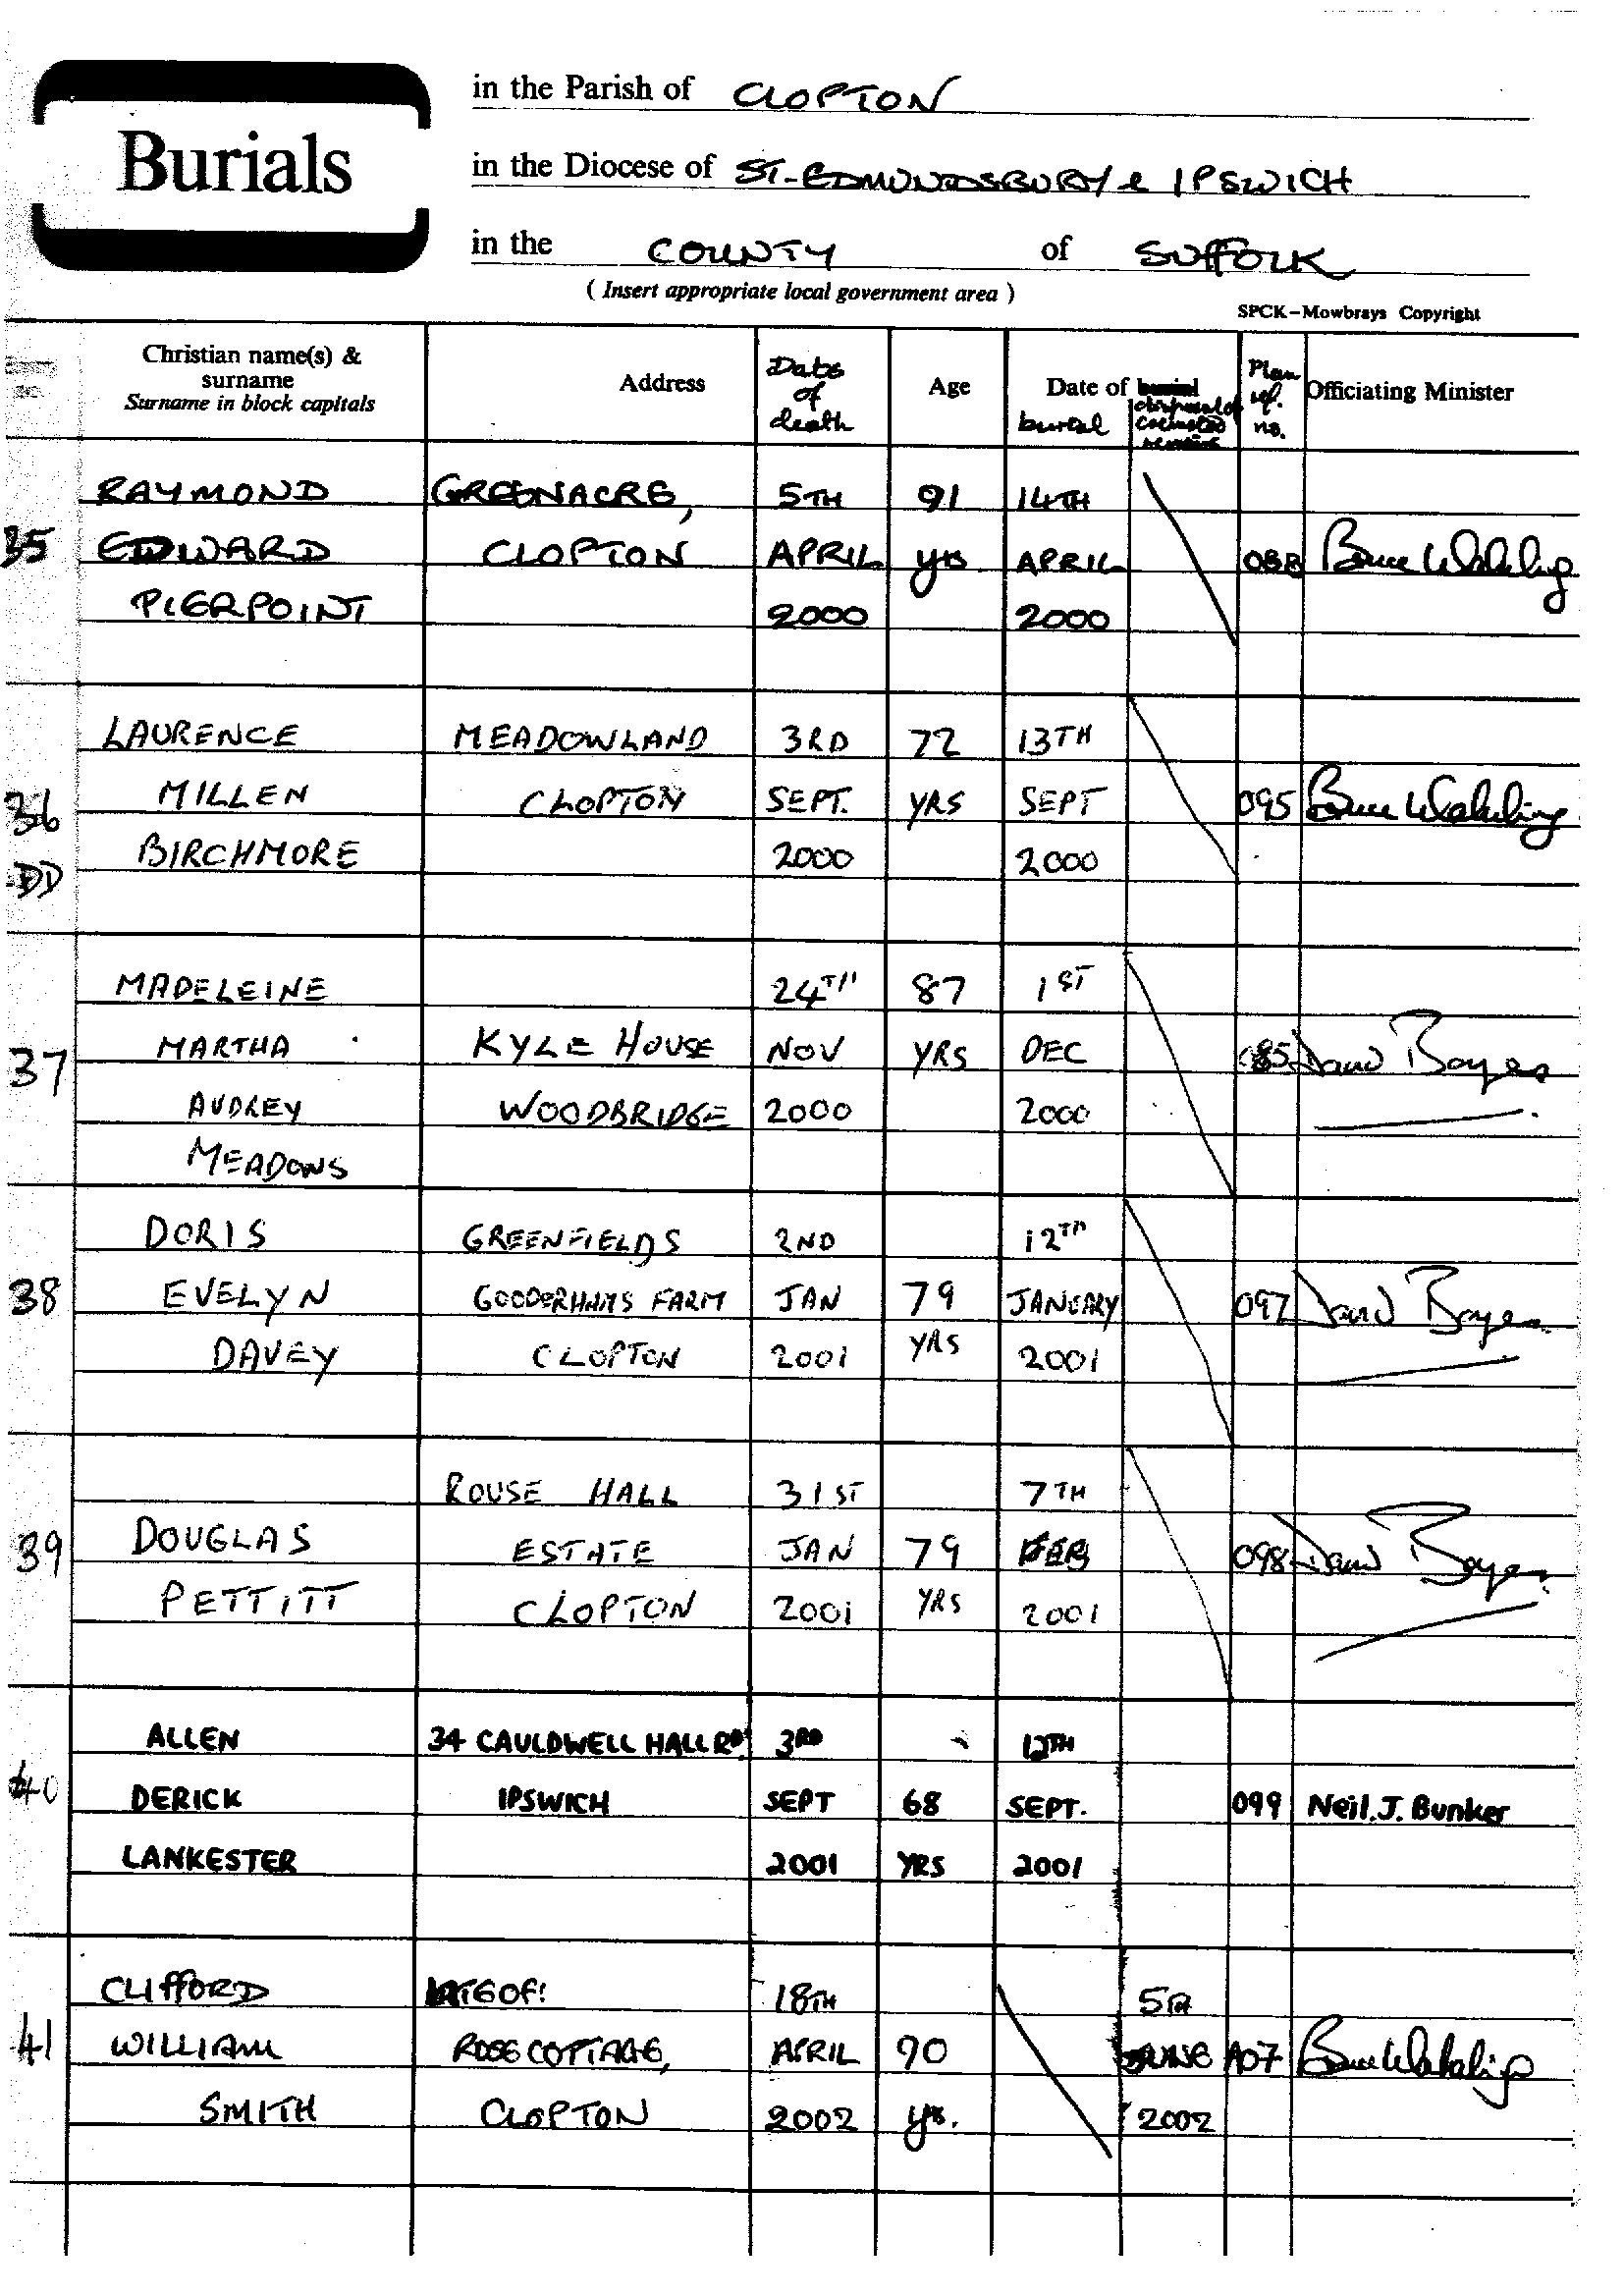 Burials
in the Parish of CLOPTON
in the Diocese of ST. EDMUNDSBURY & IPSWICH
in the COUNTY of SUFFOLK
( Insert appropriate local government area )
SPCK-Mowbrays Copyright
Christian name(s) & surname Surname in block capitals Address Date of death Age Date of burial burial disposal of cremated remains Plan ref. no. Officiating Minister
RAYMOND GREENACRE, 5TH 91 14TH
35 EDWARD CLOPTON APRIL yrs APRIL 088 Bruce Wakeling
PIERPOINT 2000 2000
LAURENCE MEADOWLAND 3RD 72 13TH
36 MILLEN CLOPTON SEPT. YRS SEPT 095 Bruce Wakeling
DD BIRCHMORE 2000 2000
MADELEINE 24TH 87 1ST
37 MARTHA KYLE HOUSE NOV YRS DEC 085 David Boyes
AUDREY WOODBRIDGE 2000 2000
MEADOWS
DORIS GREENFIELDS 2ND 12TH
38 EVELYN GOODERHAMS FARM JAN 79 JANUARY 097 David Boyes
DAVEY CLOPTON 2001 YRS 2001
ROUSE HALL 31ST 7TH
39 DOUGLAS ESTATE JAN 79 FEB 098 David Boyes
PETTITT CLOPTON 2001 YRS 2001
ALLEN 34 CAULDWELL HALL RD. 3RD 12TH
40 DERICK IPSWICH SEPT 68 SEPT. 099 Neil. J. Bunker
LANKESTER 2001 YRS 2001
CLIFFORD LATE OF: 18TH 5TH
41 WILLIAM ROSE COTTAGE, APRIL 90 JUNE A07 Bruce Wakeling
SMITH CLOPTON 2002 yrs. 2002